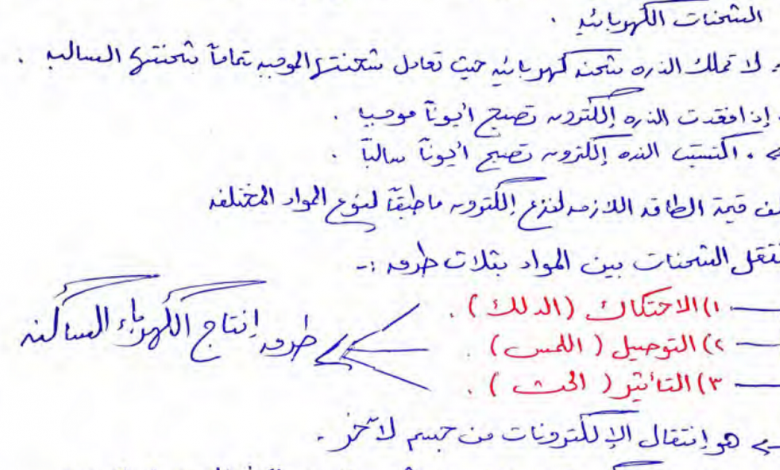 الشحنات الكهربائيه .
لا تملك الذره شحنه كهربائيه حيث تعادل شحنتها الموجبه تماماً شحنتها السالبه .
إذا فقدت الذره إلكترون تصبح أيوناً موجبا .
. اكتسبت الذره إلكترون تصبح أيوناً سالباً .
قيمة الطاقه اللازمه لنزع إلكترون ما طبقاً لنوع المواد المختلفه
تنتقل الشحنات بين المواد بثلاث طرق :-
١) الاحتكاك ( الدلك ) .
٢) التوصيل ( اللمس ) .
٣) التأثير ( الحث ) .
طرق إنتاج الكهرباء الساكنه
هو إنتقال الإلكترونات من جسم لآخر .